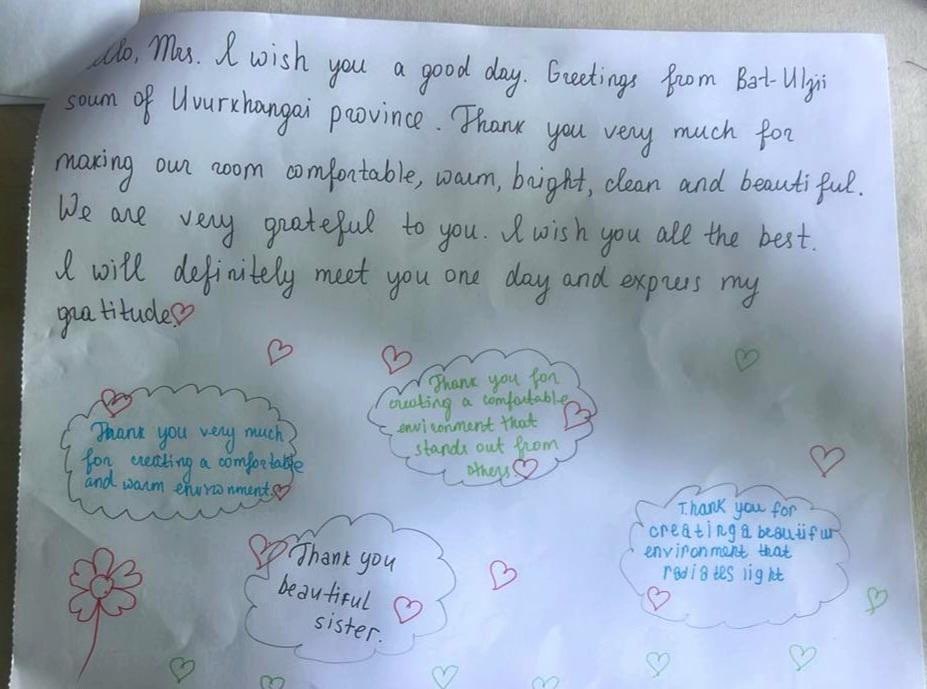 llo, Mrs. I wish you a good day. Greetings from Bat-Ulzii
soum of Uvurkhangai province. Thank you very much for
making our room comfortable, warm, bright, clean and beautiful.
We are very grateful to you. I wish you all the best.
I will definitely meet you one day and express my
gratitude.
Thank you very much
for creating a comfortable
and warm environment.
Thank you for
creating a comfortable
environment that
stands out from
others.
Thank you
beautiful
sister.
Thank you for
creating a beautiful
environment that
radiates light